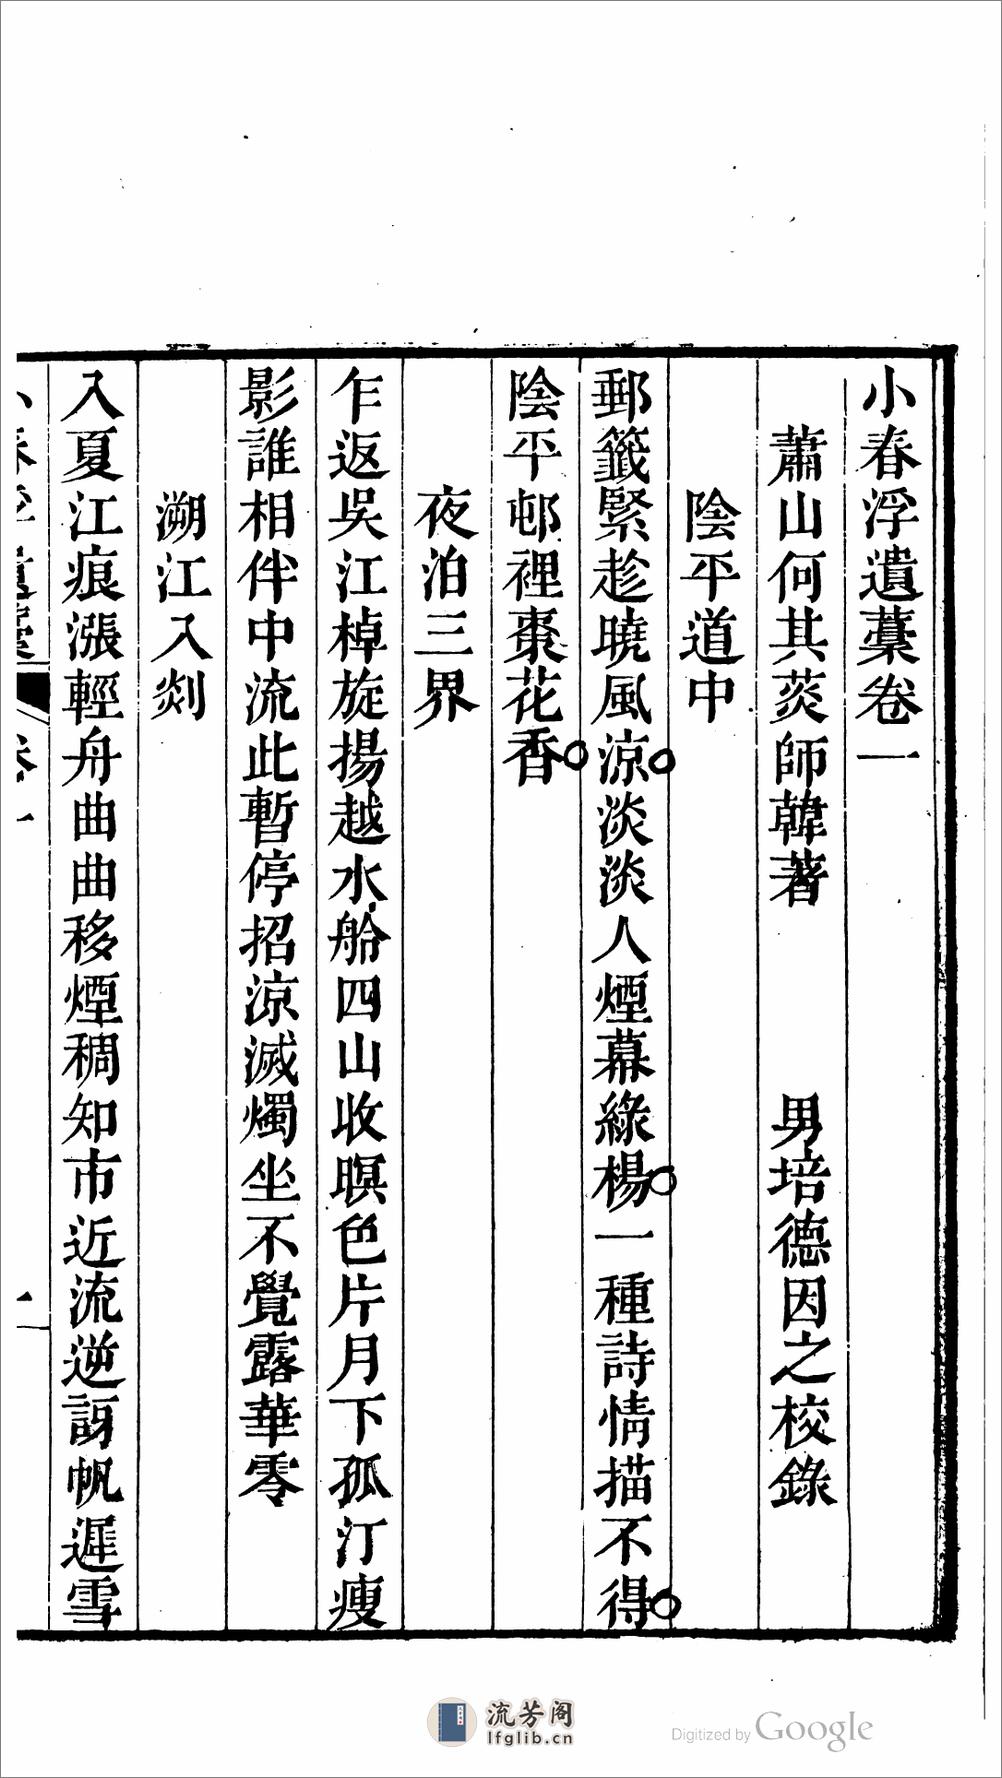 小春浮遺藳卷一
蕭山何其菼師韓著 男培德因之校錄
陰平道中
郵籤緊趁曉風涼淡淡人煙幕綠楊一種詩情描不得
陰平邨裡棗花香
夜泊三界
乍返吳江棹旋揚越水船四山收暝色片月下孤汀瘦
影誰相伴中流此暫停招涼滅燭坐不覺露華零
溯江入剡
入夏江痕漲輕舟曲曲移煙稠知市近流逆訝帆遲雪
卷一
一
流芳阁
lfglib.cn
Digitized by Google